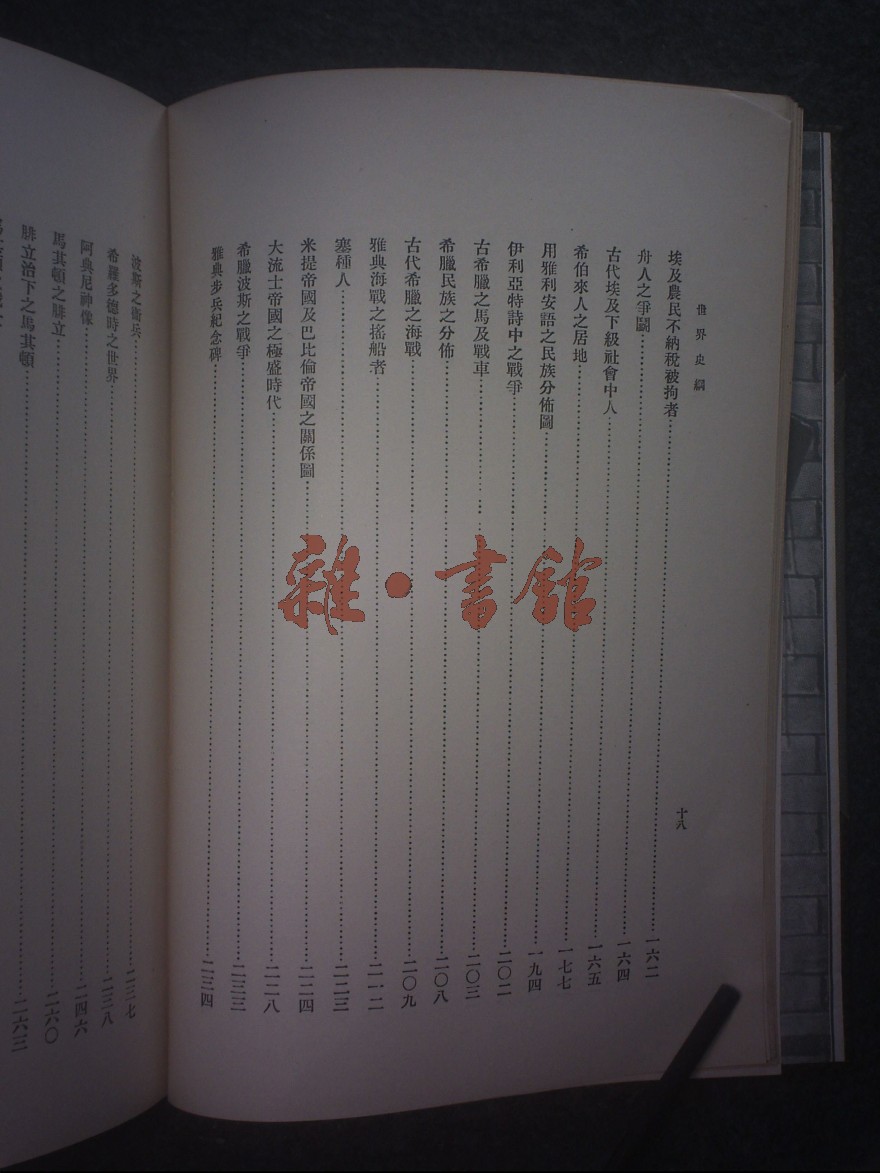 世界史綱
十八
埃及農民不納稅被拘者……一六二
舟人之爭鬪……一六四
古代埃及下級社會中人……一六五
希伯來人之居地……一七七
用雅利安語之民族分佈圖……一九四
伊利亞特詩中之戰爭……二〇二
古希臘之馬及戰車……二〇三
希臘民族之分佈……二〇八
古代希臘之海戰……二〇九
雅典海戰之搖船者……二一二
塞種人……二二三
米提帝國及巴比倫帝國之關係圖……二二四
大流士帝國之極盛時代……二二八
希臘波斯之戰爭……二三三
雅典步兵紀念碑……二三四
波斯之衛兵……二三七
希羅多德時之世界……二三八
阿典尼神像……二四六
馬其頓之腓立……二六〇
腓立治下之馬其頓……二六三
雜·書館